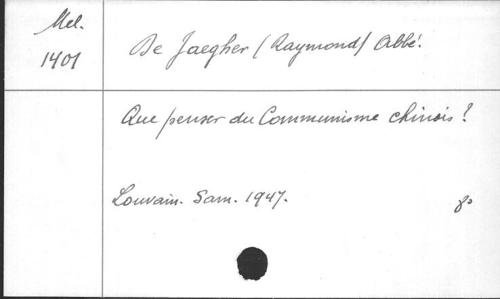 Mel.
1401
De Jaegher (Raymond) Abbé.
Que penser du Communisme chinois?
Louvain. Sam. 1947. 8°